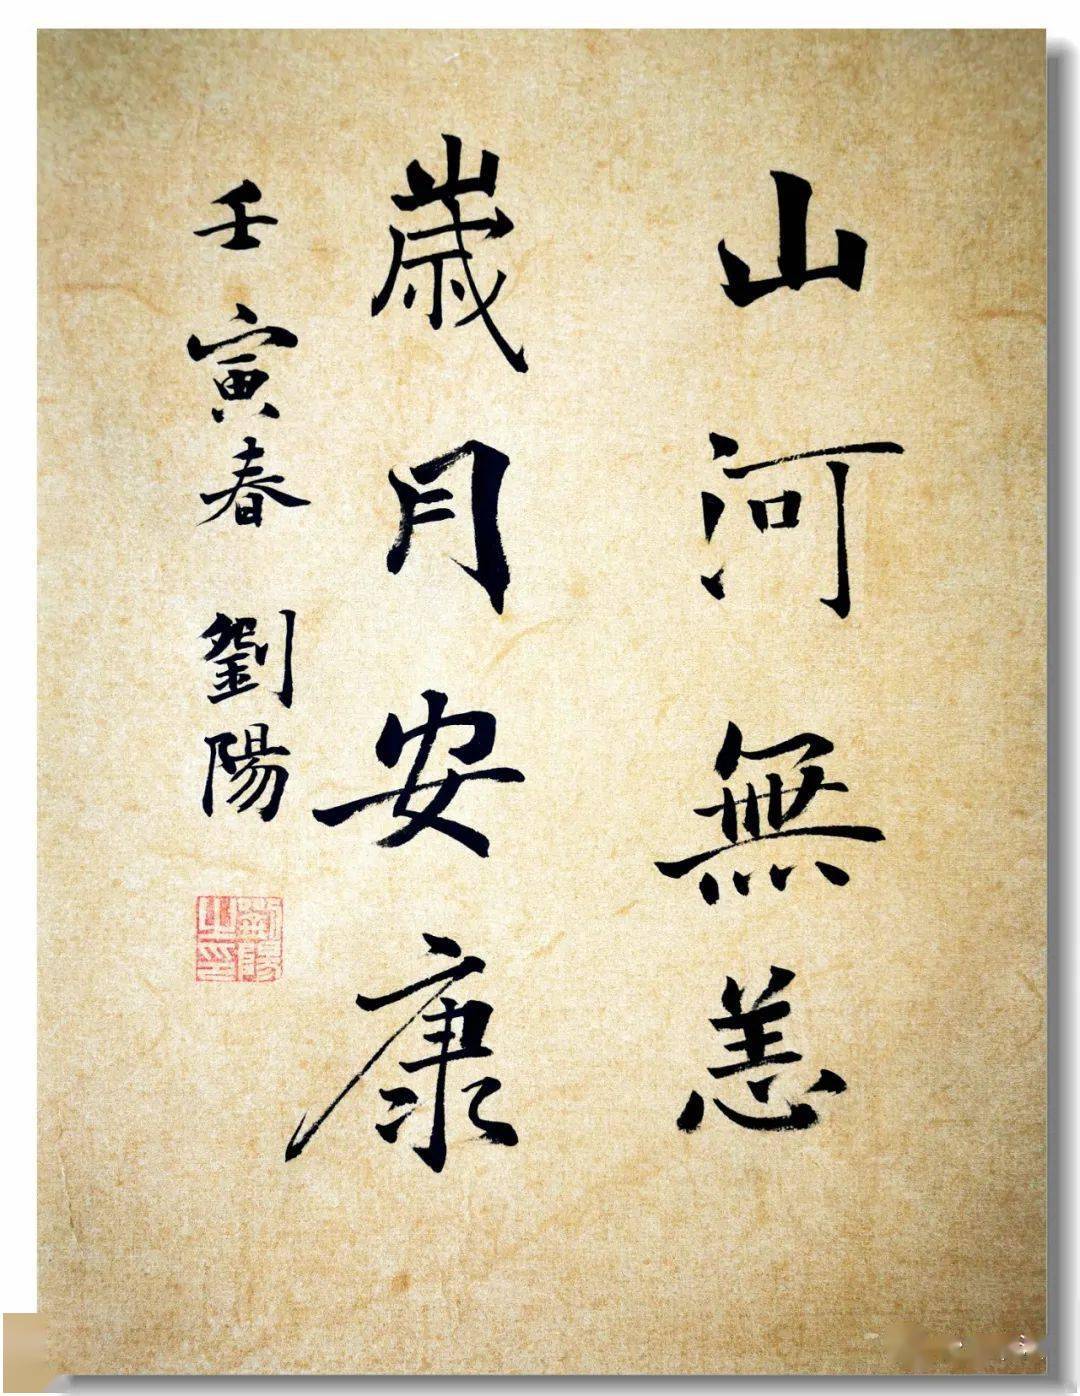 山河無恙
歲月安康
壬寅春 劉陽
劉陽之印